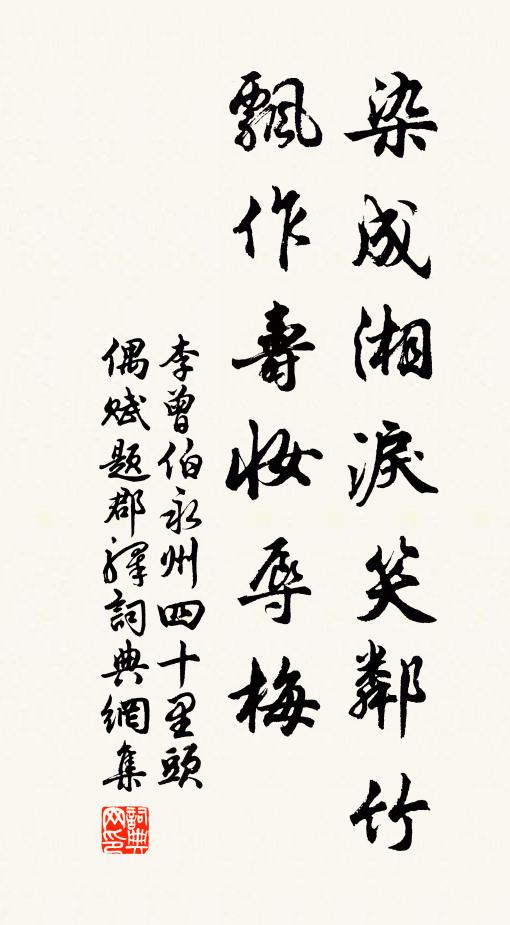 染成湘淚笑鄰竹
飄作壽妝辱梅
李曾伯永州四十里頭
偶賦題郡驛詞典網集
詞典
网印